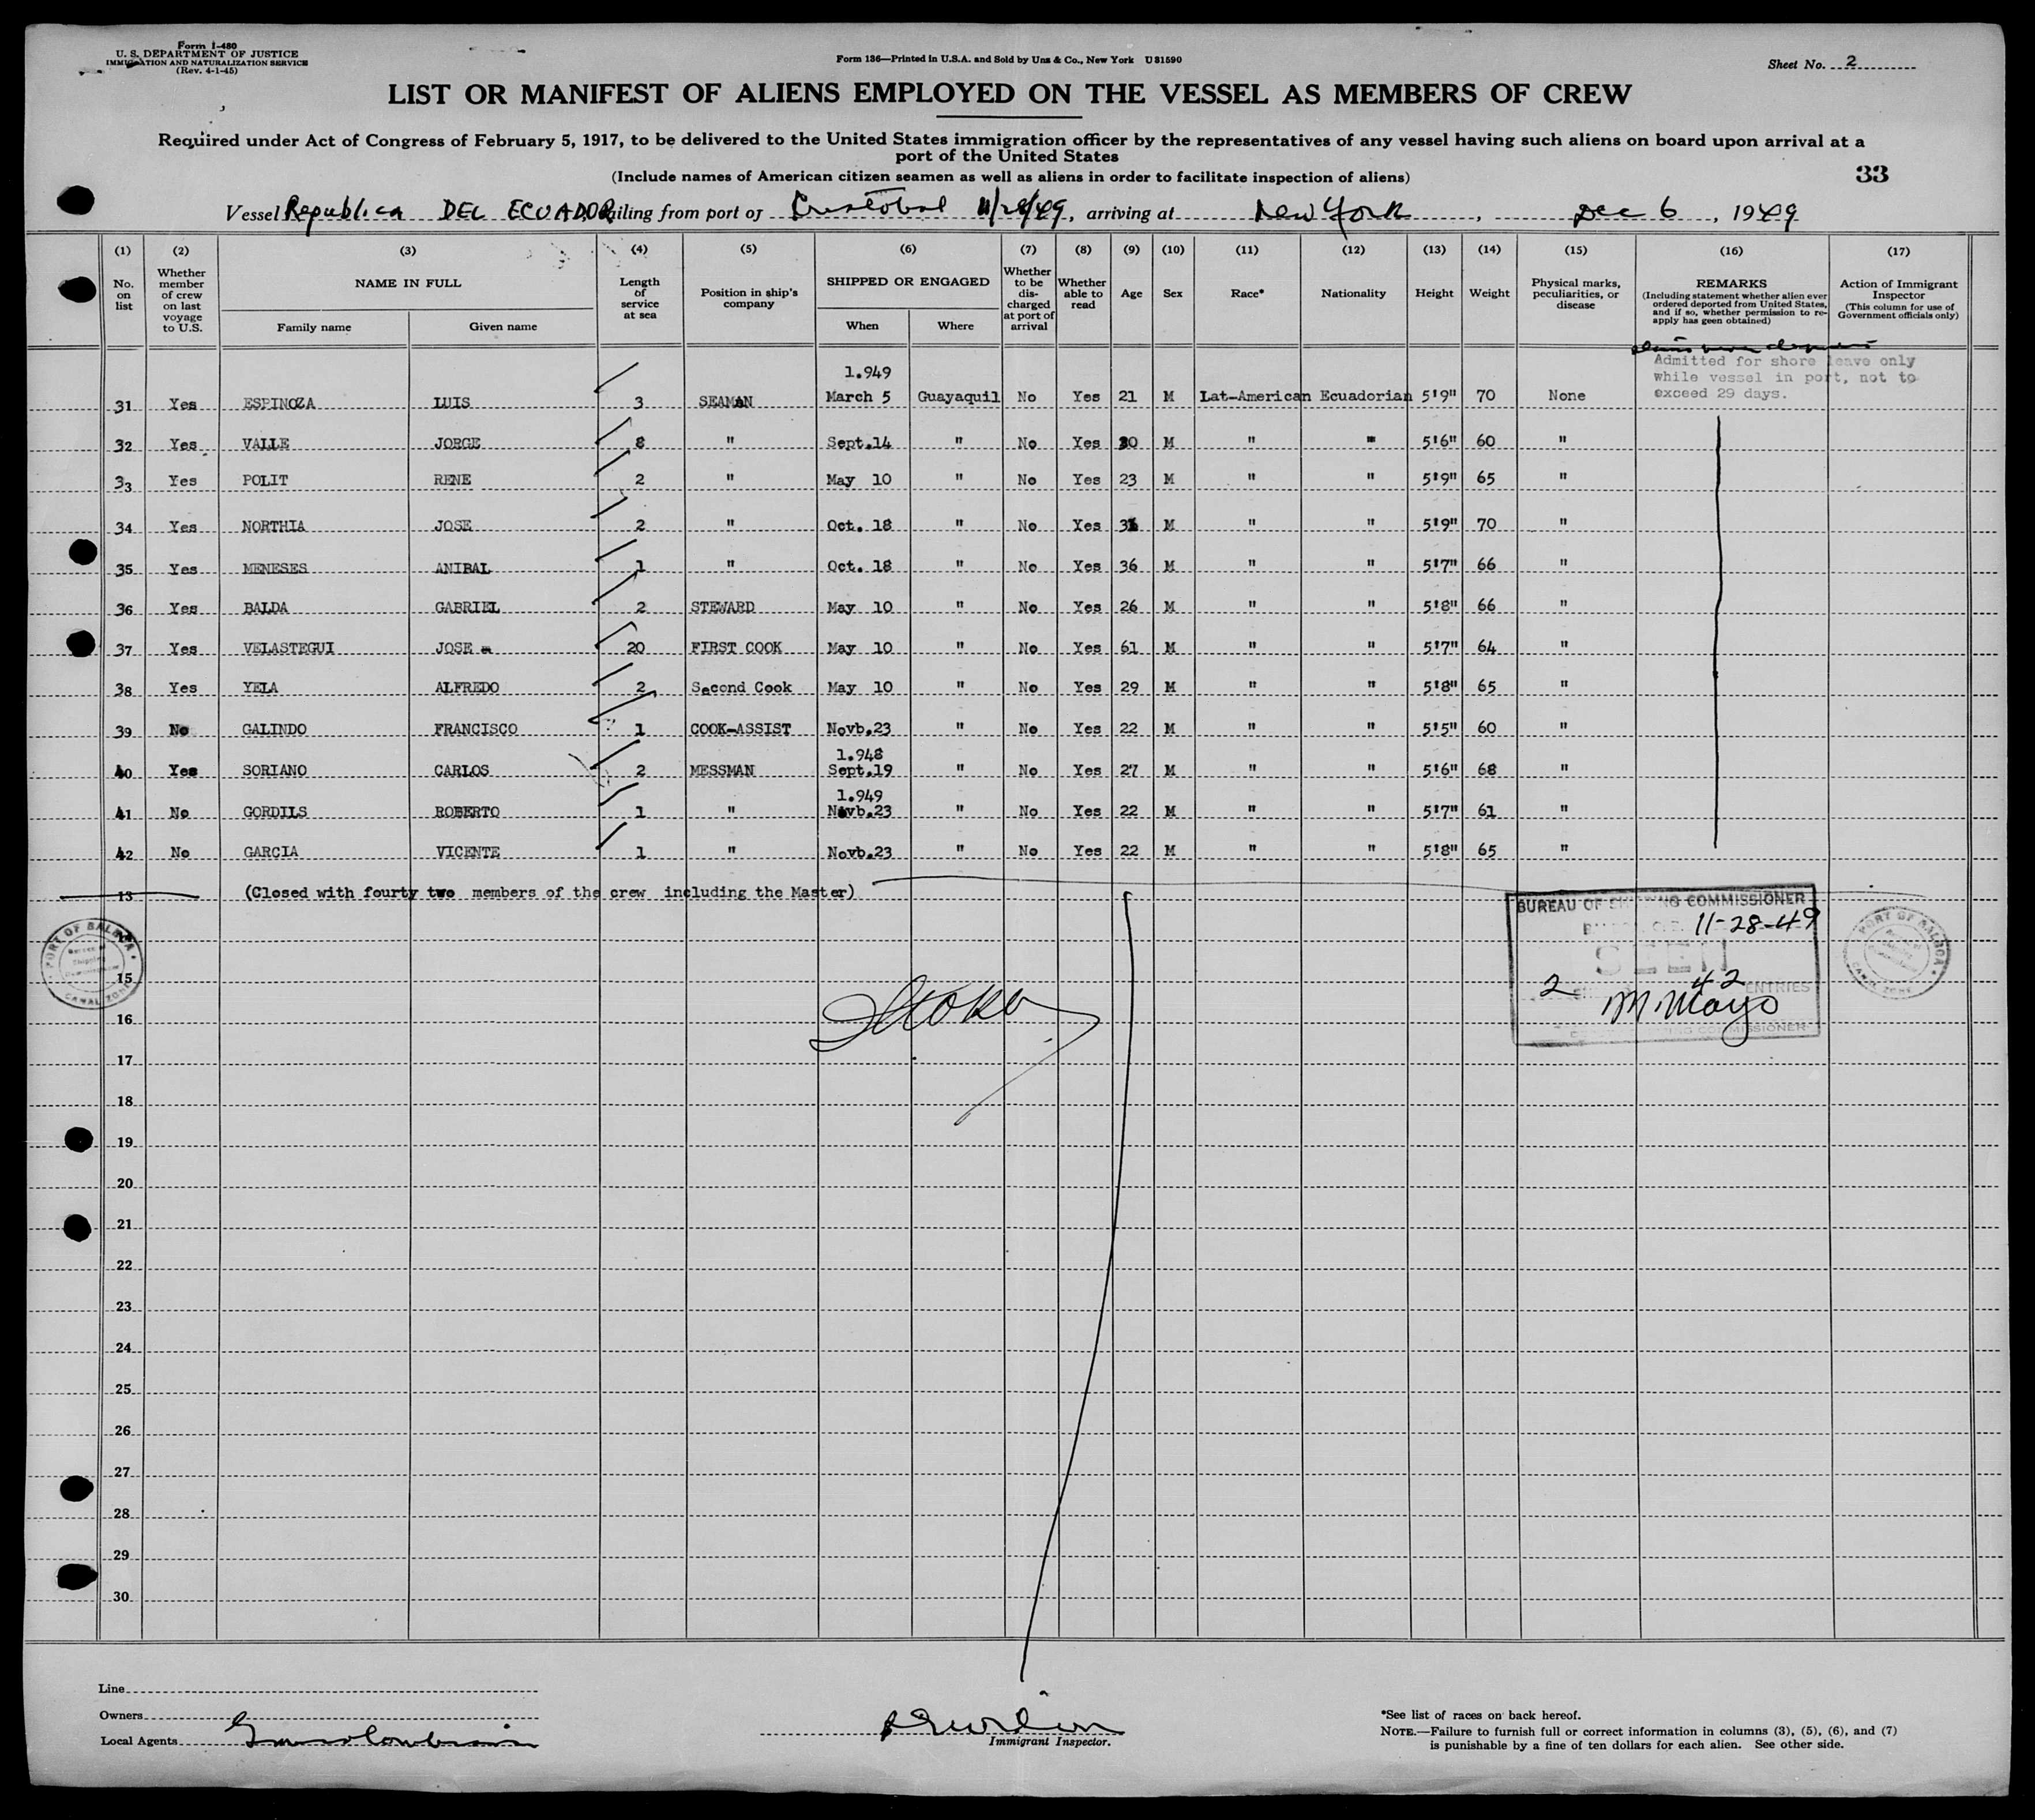 Form I-480
U. S. DEPARTMENT OF JUSTICE
IMMIGRATION AND NATURALIZATION SERVICE
(Rev. 4-1-45)
Form 136—Printed in U.S.A. and Sold by Unz & Co., New York U 31590
Sheet No. 2
LIST OR MANIFEST OF ALIENS EMPLOYED ON THE VESSEL AS MEMBERS OF CREW
Required under Act of Congress of February 5, 1917, to be delivered to the United States immigration officer by the representatives of any vessel having such aliens on board upon arrival at a
port of the United States
(Include names of American citizen seamen as well as aliens in order to facilitate inspection of aliens)
33
Vessel Republica DEL ECUADOR, sailing from port of Cristobal 11/28/49, arriving at New York, Dec 6, 1949
(1) (2) (3) (4) (5) (6) (7) (8) (9) (10) (11) (12) (13) (14) (15) (16) (17)
No. on list
Whether member of crew on last voyage to U.S.
NAME IN FULL
Family name Given name
Length of service at sea
Position in ship's company
SHIPPED OR ENGAGED
When Where
Whether to be discharged at port of arrival
Whether able to read
Age
Sex
Race*
Nationality
Height
Weight
Physical marks, peculiarities, or disease
REMARKS
(Including statement whether alien ever ordered deported from United States, and if so, whether permission to re-apply has geen obtained)
Action of Immigrant Inspector
(This column for use of Government officials only)
Admitted for shore leave only
while vessel in port, not to
exceed 29 days.
1.949
31 Yes ESPINOZA LUIS 3 SEAMAN March 5 Guayaquil No Yes 21 M Lat-American Ecuadorian 5'9" 70 None
32 Yes VALLE JORGE 8 " Sept.14 " No Yes M " " 5'6" 60 "
33 Yes POLIT RENE 2 " May 10 " No Yes 23 M " " 5'9" 65 "
34 Yes NORTHIA JOSE 2 " Oct. 18 " No Yes M " " 5'9" 70 "
35 Yes MENESES ANIBAL 1 " Oct. 18 " No Yes 36 M " " 5'7" 66 "
36 Yes BALDA GABRIEL 2 STEWARD May 10 " No Yes 26 M " " 5'8" 66 "
37 Yes VELASTEGUI JOSE 20 FIRST COOK May 10 " No Yes 61 M " " 5'7" 64 "
38 Yes YELA ALFREDO 2 Second Cook May 10 " No Yes 29 M " " 5'8" 65 "
39 No GALINDO FRANCISCO 1 COOK-ASSIST Novb.23 " No Yes 22 M " " 5'5" 60 "
1.948
40 Yes SORIANO CARLOS 2 MESSMAN Sept.19 " No Yes 27 M " " 5'6" 68 "
1.949
41 No GORDILS ROBERTO 1 " Novb.23 " No Yes 22 M " " 5'7" 61 "
42 No GARCIA VICENTE 1 " Novb.23 " No Yes 22 M " " 5'8" 65 "
13 (Closed with fourty two members of the crew including the Master)
BUREAU OF SHIPPING COMMISSIONER
11-28-49
SEEN
2 42 ENTRIES
M. Mayo
SHIPPING COMMISSIONER
PORT OF BALBOA
Shipping
CANAL ZONE
PORT OF BALBOA
CANAL ZONE
15
16
17
18
19
20
21
22
23
24
25
26
27
28
29
30
Line
Owners
Local Agents
Immigrant Inspector.
*See list of races on back hereof.
NOTE.—Failure to furnish full or correct information in columns (3), (5), (6), and (7)
is punishable by a fine of ten dollars for each alien. See other side.